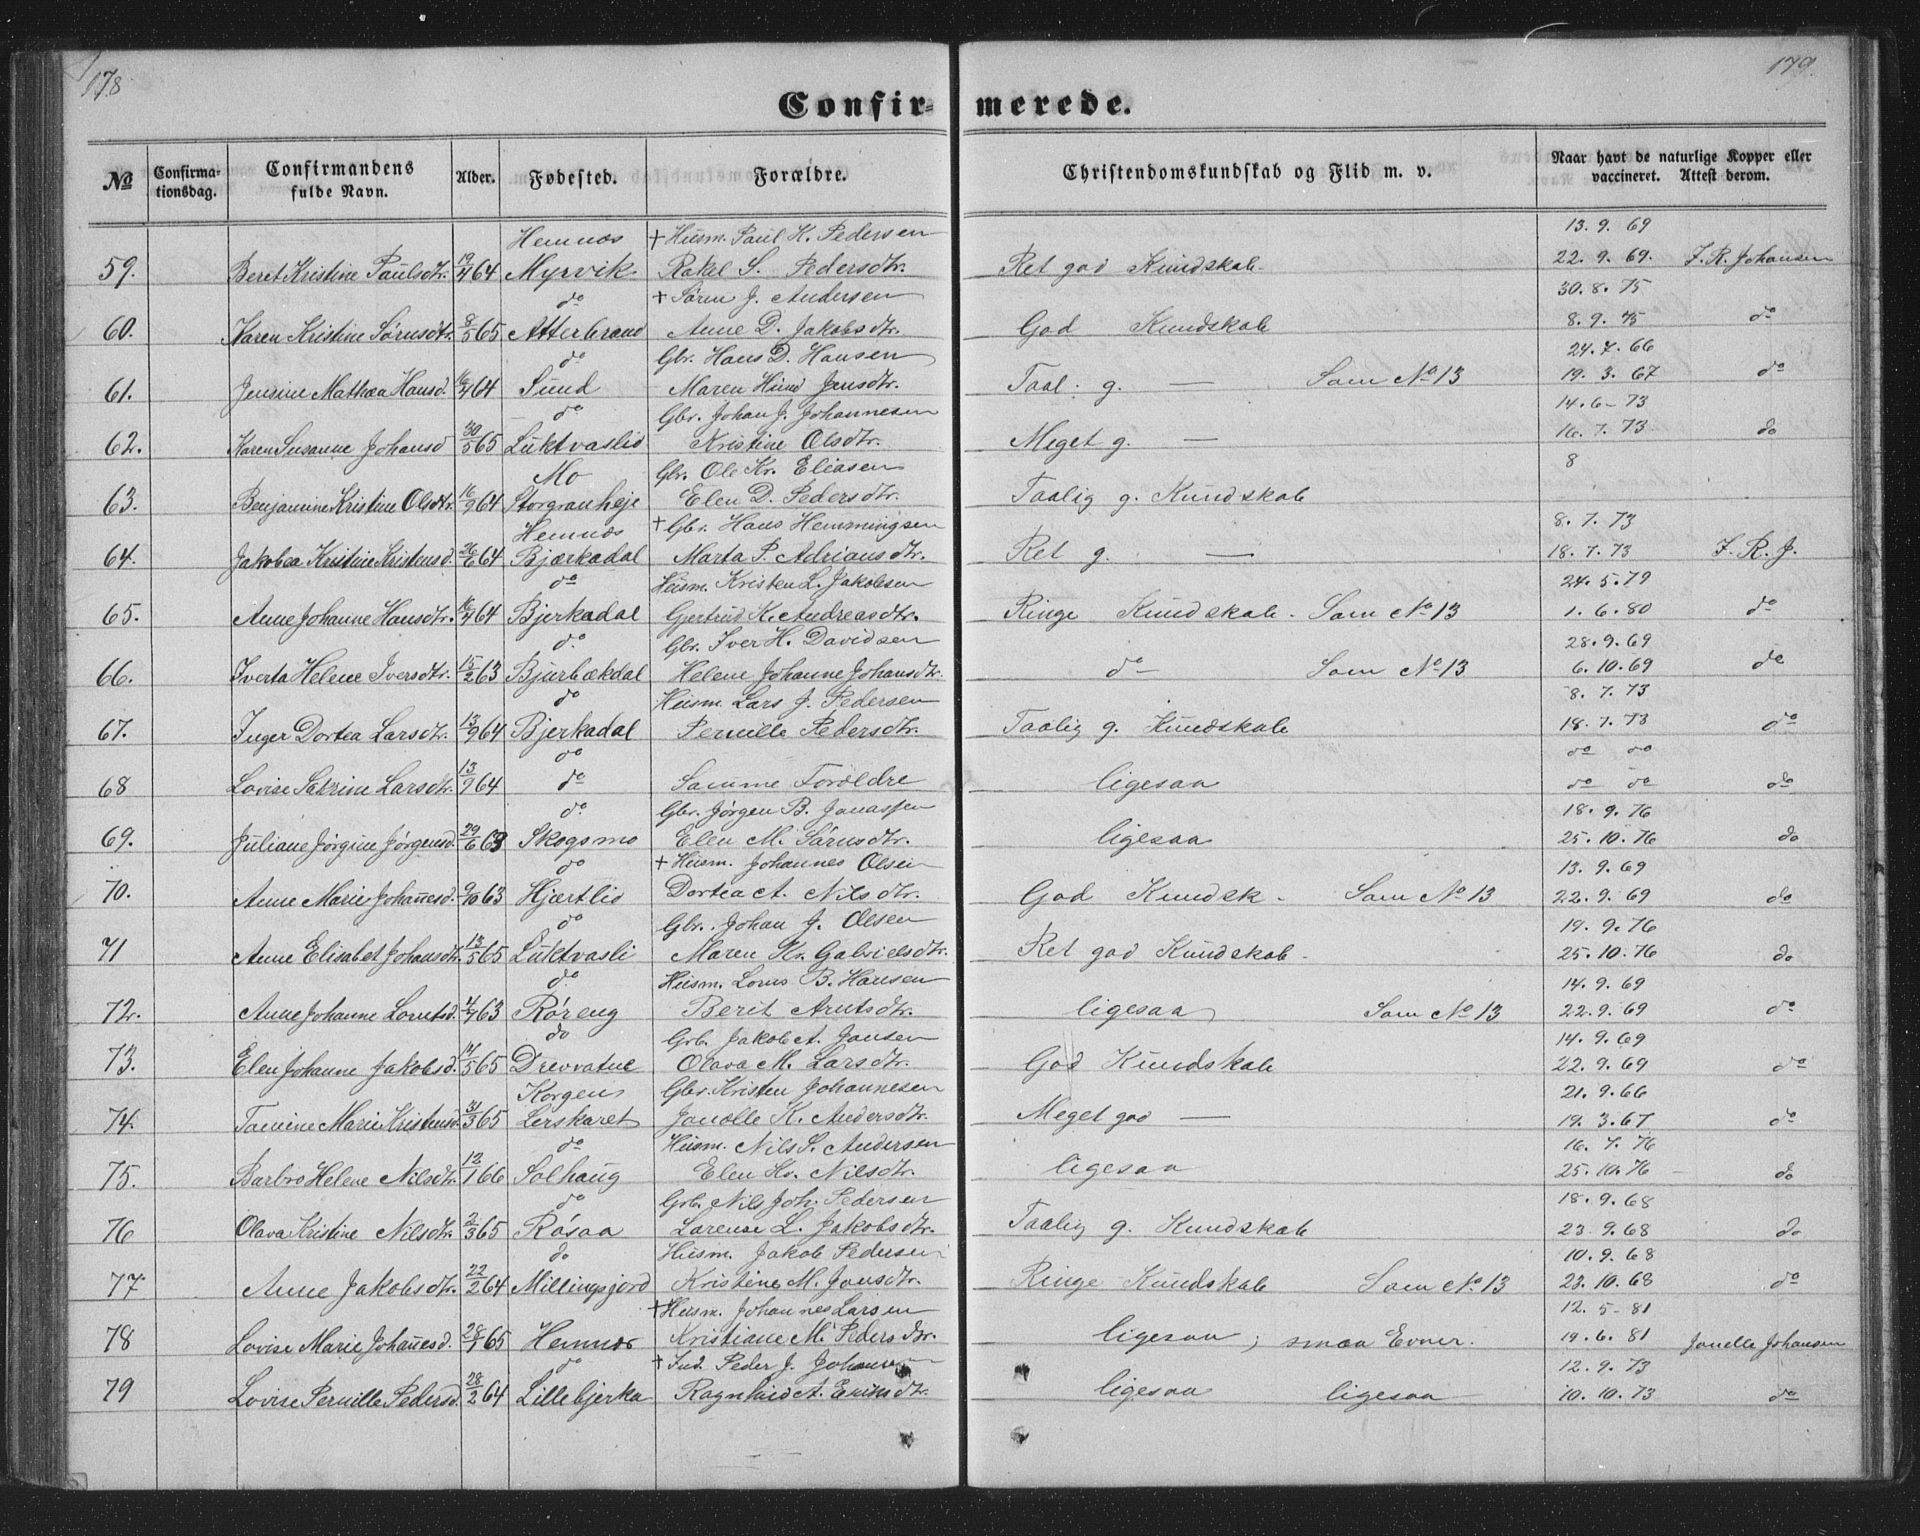 178
179.
Confir- merede.
No
Confirma-
tionsdag.
Confirmandens
fulde Navn.
Alder.
Fødested.
Forældre.
Christendomskundskab og Flid m. v.
Naar havt de naturlige Kopper eller
vaccineret. Attest derom.
Hemnæs + Husm. Paul K. Pedersen 13. 9. 69
59. Beret Kristine Paulsdtr. 19/4 64 Myrvik Rakel S. Pedersdtr. Ret god Kundskab. 22. 9. 69. F. R. Johansen
do + Søren J. Andersen 30. 8. 75
60. Karen Kristine Sørnsdtr. 8/5 65 Atterbrand Anne D. Jakobsdtr. God Kundskab 8. 9. 75 do
do Gbr. Hans D. Hansen 24. 7. 66
61. Jensine Mathea Hansd. 64 Sund Maren Hind Jensdtr. Taal. g. — Som No 13 19. 3. 67 do
do Gbr. Johan J. Johannesen 14. 6 - 73
62. Karen Susanne Johansd 30/5 65 Luktvaslid Kristine Olsdtr. Meget g. — 16. 7. 73 do
Mo Gbr. Ole Kr. Eliasen 8
63. Benjamine Kristine Olsdtr. 16/9 64 Storgranheje Elen D. Pedersdtr. Taalig g. Kundskab
Hemnæs + Gbr. Hans Hemmingsen 8. 7. 73
64. Jakobea Kristine Kristensd. 26/6 64 Bjærkadal Marta P. Adriansdtr. Ret g. — 18. 7. 73 F. R. J.
do Husm. Kristen L. Jakobsen 24. 5. 79
65. Anne Johanne Hansdtr. 64 Bjerkadal Gjertrud K. Andreasdtr. Ringe Kundskab. Som No 13 1. 6. 80 do
do. Gbr. Iver H. Davidsen 28. 9. 69
66. Iverta Helene Iversdtr. 15/2 63 Bjurbækdal Helene Johanne Johansdtr. do Som No 13 6. 10. 69 do
do Husm. Lars J. Pedersen 8. 7. 73
67. Inger Dortea Larsdtr. 13/9 64 Bjerkadal Pernille Pedersdtr. Taalig g. Kundskab 18. 7. 73 do
do do do
68 Lovise Katrine Larsdtr. 13/9 64 do Samme Foroldre ligesaa do do do
do. Gbr. Jørgen B. Jonassen 18. 9. 76
69. Juliane Jørgine Jørgensd. 29/6 63 Skogsmo Elen M. Sørnsdtr. ligesaa 25. 10. 76 do
do + Husm. Johannes Olsen 13. 9. 69
70. Anne Marie Johannesd. 9/10 63 Hjærtlid Dortea A. Nilsdtr. God Kundsk. Som No 13 22. 9. 69 do
do Gbr. Johan J. Olsen 19. 9. 76
71 Anne Elisabet Johansdtr. 13/5 65 Luktvasli Maren Kr. Gabrielsdtr. Ret god Kundskab. 25. 10. 76 do
do. Husm. Lorns B. Hansen 14. 9. 69
72. Anne Johanne Lorntsd. 63 Røreng Berit Arntsdtr. ligesaa Som No 13 22. 9. 69 do
do Grb. Jakob A. Jonsen 14. 9. 69
73. Elen Johanne Jakobsd. 65 Drevvatne Olava M. Larsdtr. God Kundskab 22. 9. 69 do
Korgen Gbr. Kristen Johannesen 21. 9. 66
74. Tomine Marie Kristensd. 31/3 65 Lerskaret Jonelle K. Andersdtr. Meget god — 19. 3. 67 do
do Husm. Nils S. Andersen 16. 7. 76
75. Barbro Helene Nilsdtr. 12/1 66 Solhaug Elen Kr. Nilsdtr. ligesaa 25. 10. 76 do
do Grb. Nils Joh. Pedersen 18. 9. 68
76 Olava Kristine Nilsdtr. 2/3 65 Røsaa Lorense L. Jakobsdtr. Taalig g. Kundskab 23. 9. 68 do
do Husm. Jakob Pedersen 10. 9. 68
77 Anne Jakobsdtr. 22/2 64 Millingsjord Kristine M. Jonsdtr. Ringe Kundskab Som No 13 23. 10. 68 do
+ Husm. Johannes Larsen 12. 5 - 81
78 Lovise Marie Johannesd. 65 Hemnæs Kristiane M. Pedersdtr. ligesaa, smaa Evner. 19. 6. 81 Jonelle Johansen
do + Ind. Peder J. Johansen 12. 9. 73
79 Lovise Pernille Pedersd. 28/2 64 Lillebjerka Ragnhild A. ligesaa ligesaa 10. 10. 73 do